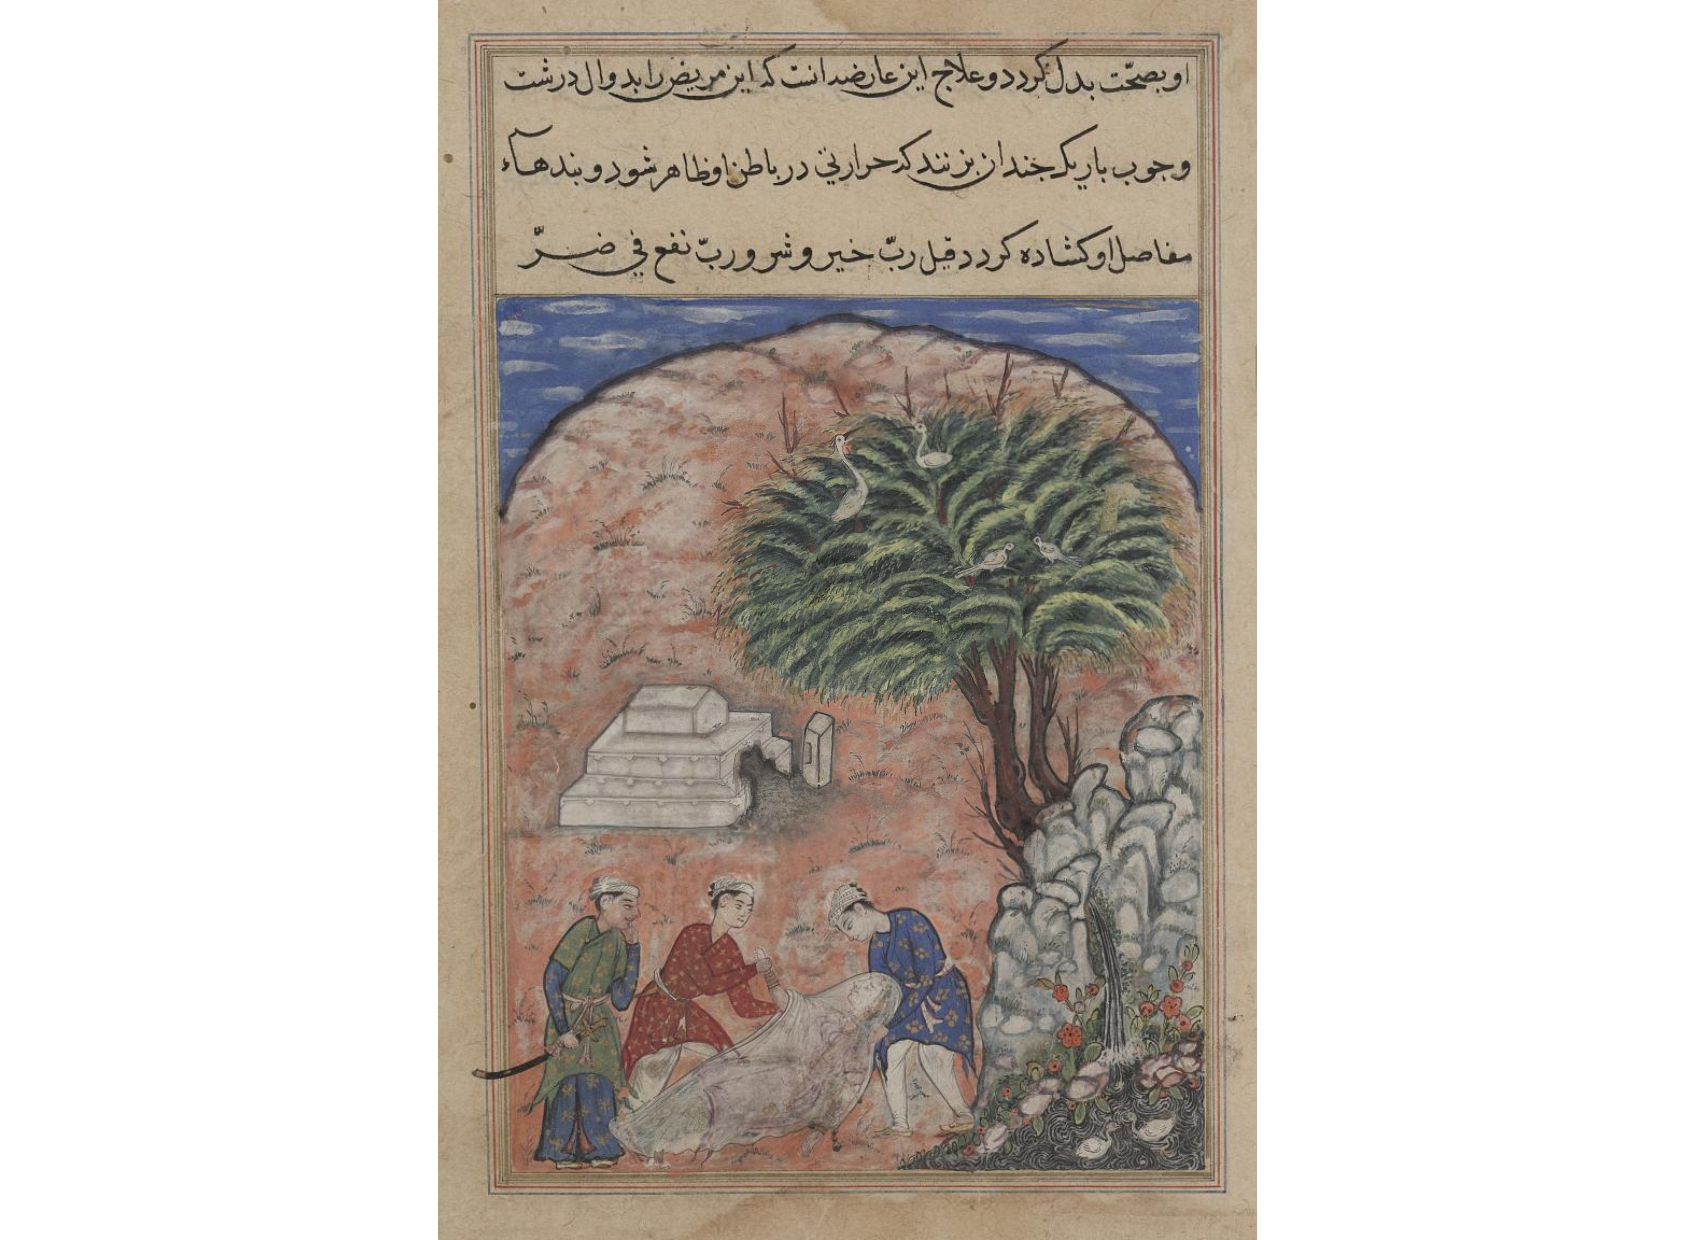 او بصحّت بدل کردد و علاج این عارضه انست که این مریض را بدوال درشت
و چوب باریک جندان بزنند که حرارتی در باطن او ظاهر شود و بندهاء
مفاصل او کشاده کردد قیل ربّ خیر و شر و ربّ نفع في ضرّ